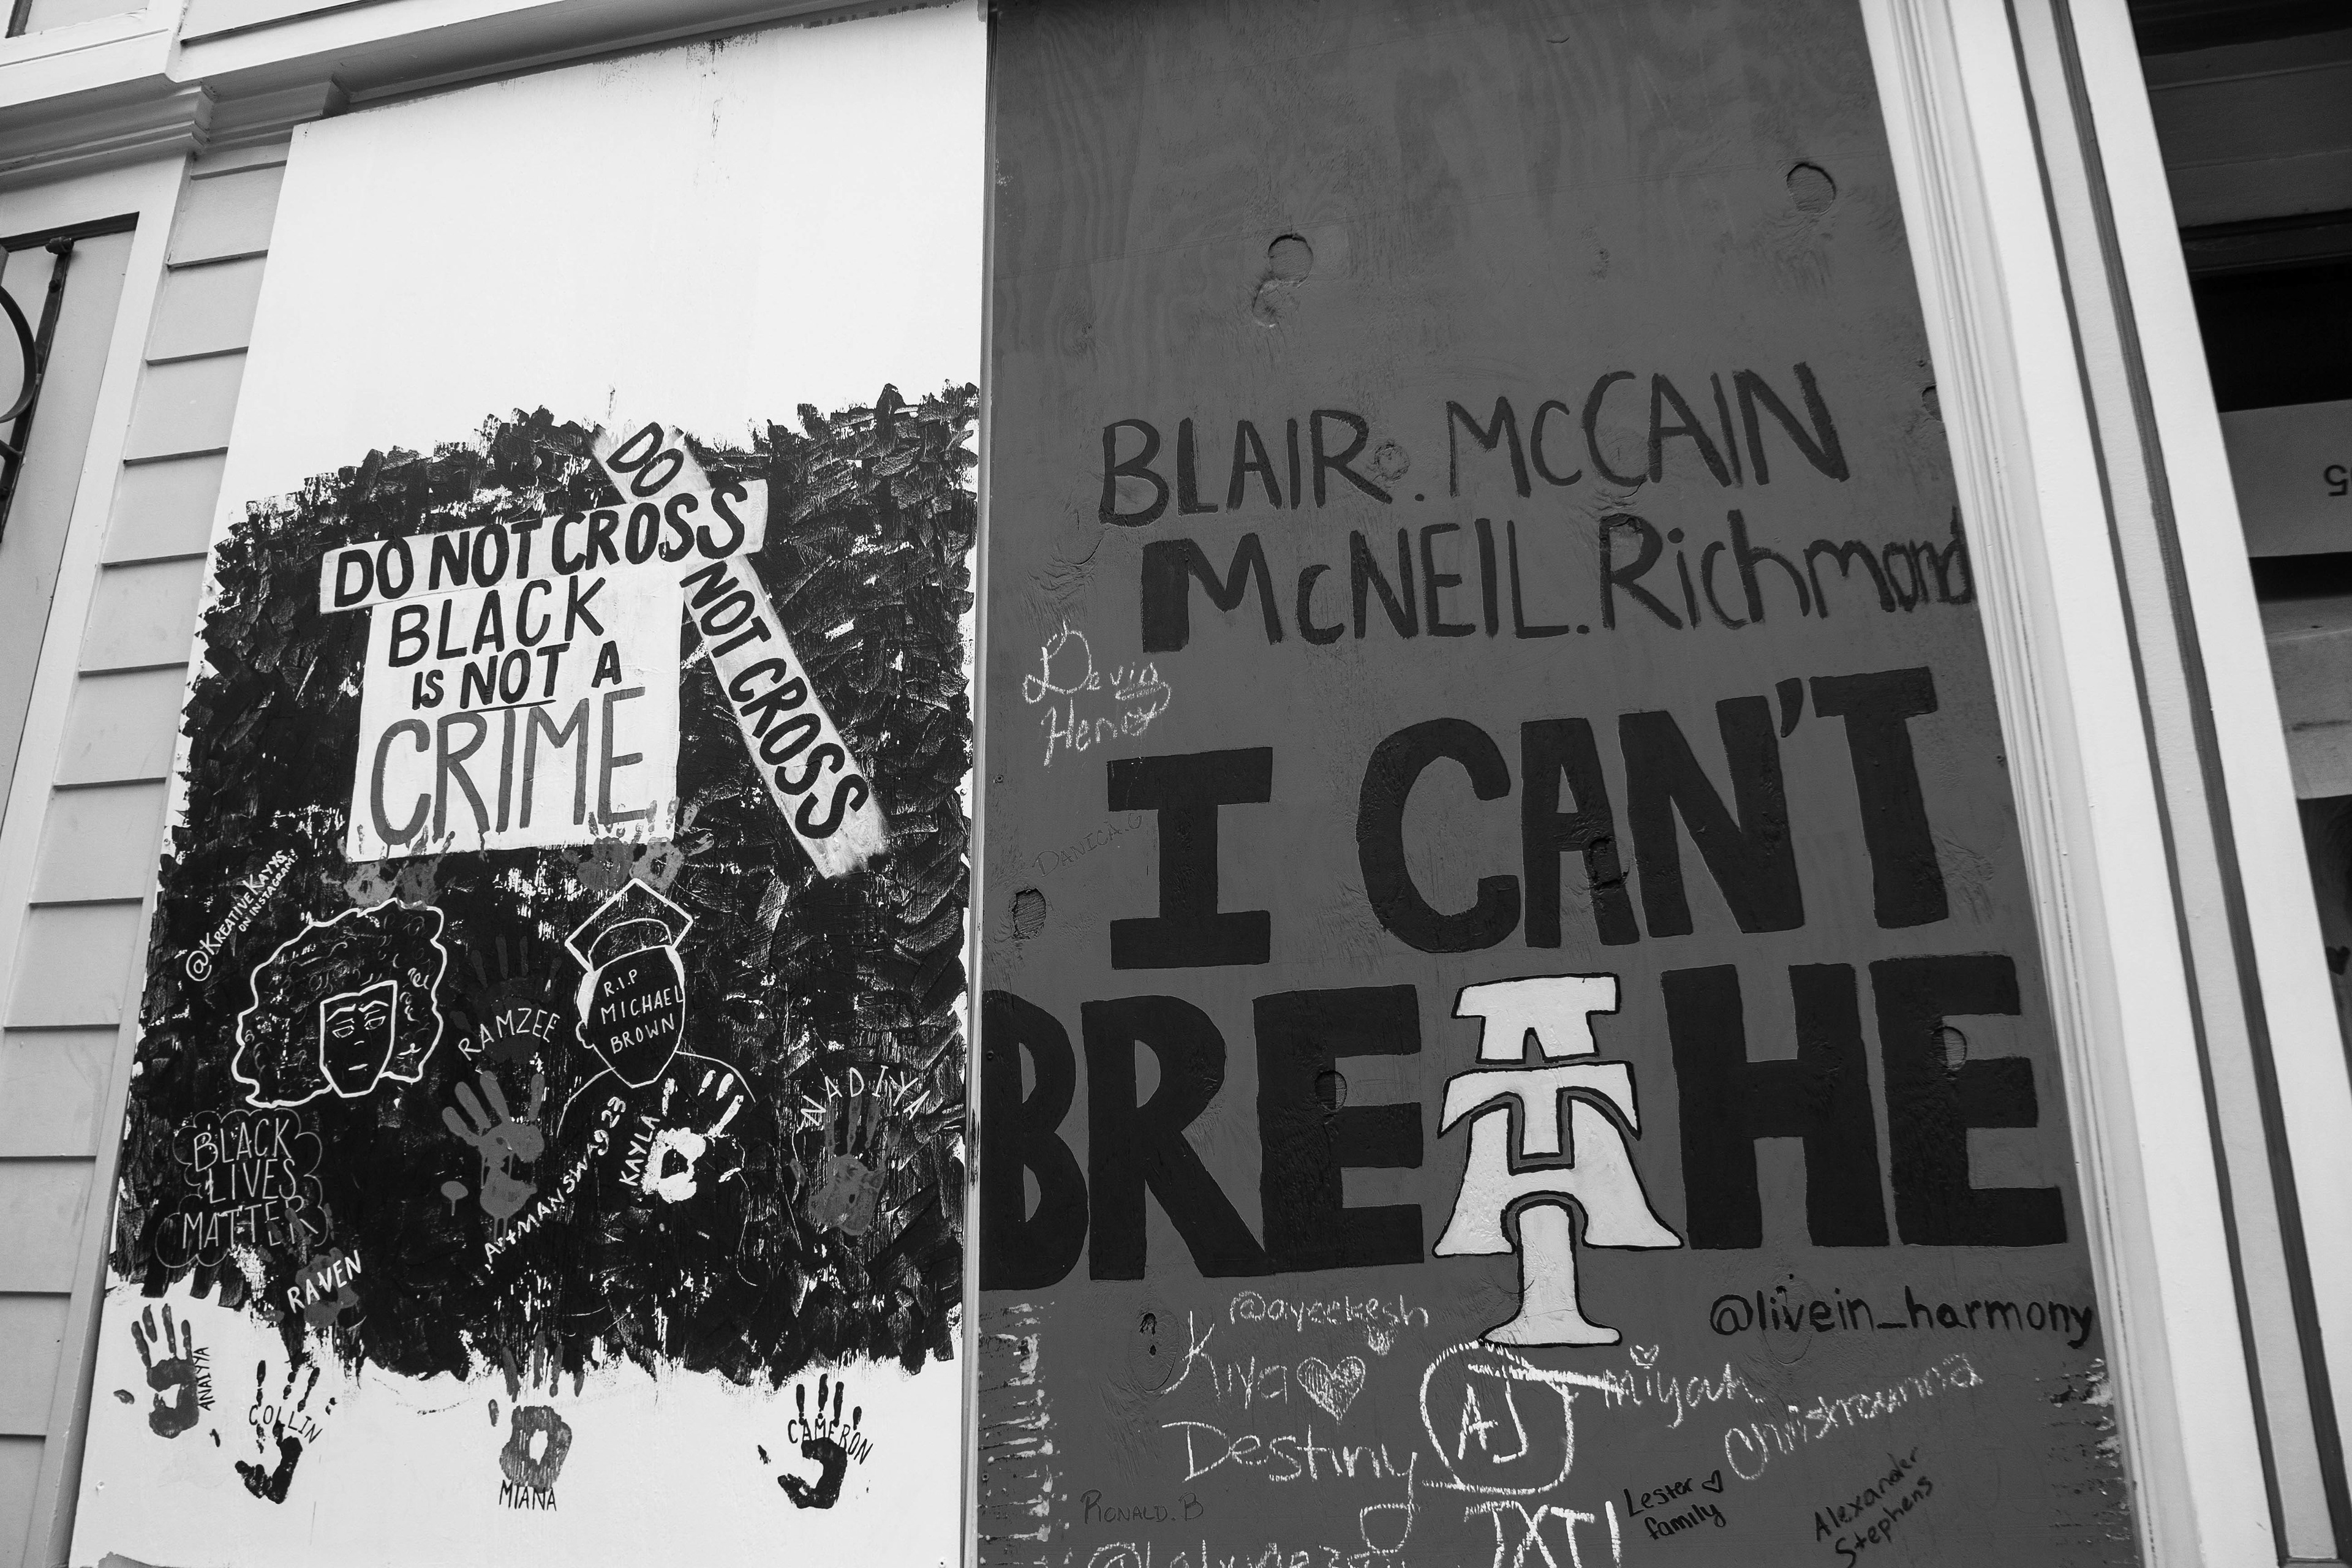 DO NOT CROSS
DO NOT CROSS
BLACK
IS NOT A
CRIME
@KREATIVE KAIYKS
ON INSTAGRAM!
R.I.P
MICHAEL
BROWN
RAMZEE
NADIYA
ArtMANSWAG23
KAYLA
BLACK
LIVES
MATTER
RAVEN
ANAIYYA
COLLIN
MIANA
CAMERON
BLAIR. MCCAIN
MCNEIL. Richmond
Devin
DANICA.G
I CAN'T
BREATHE
@ayeekesh
@livein_harmony
Kiya
miyah
AJ
Destiny
RONALD. B
Lester
family
Alexander
Stephens